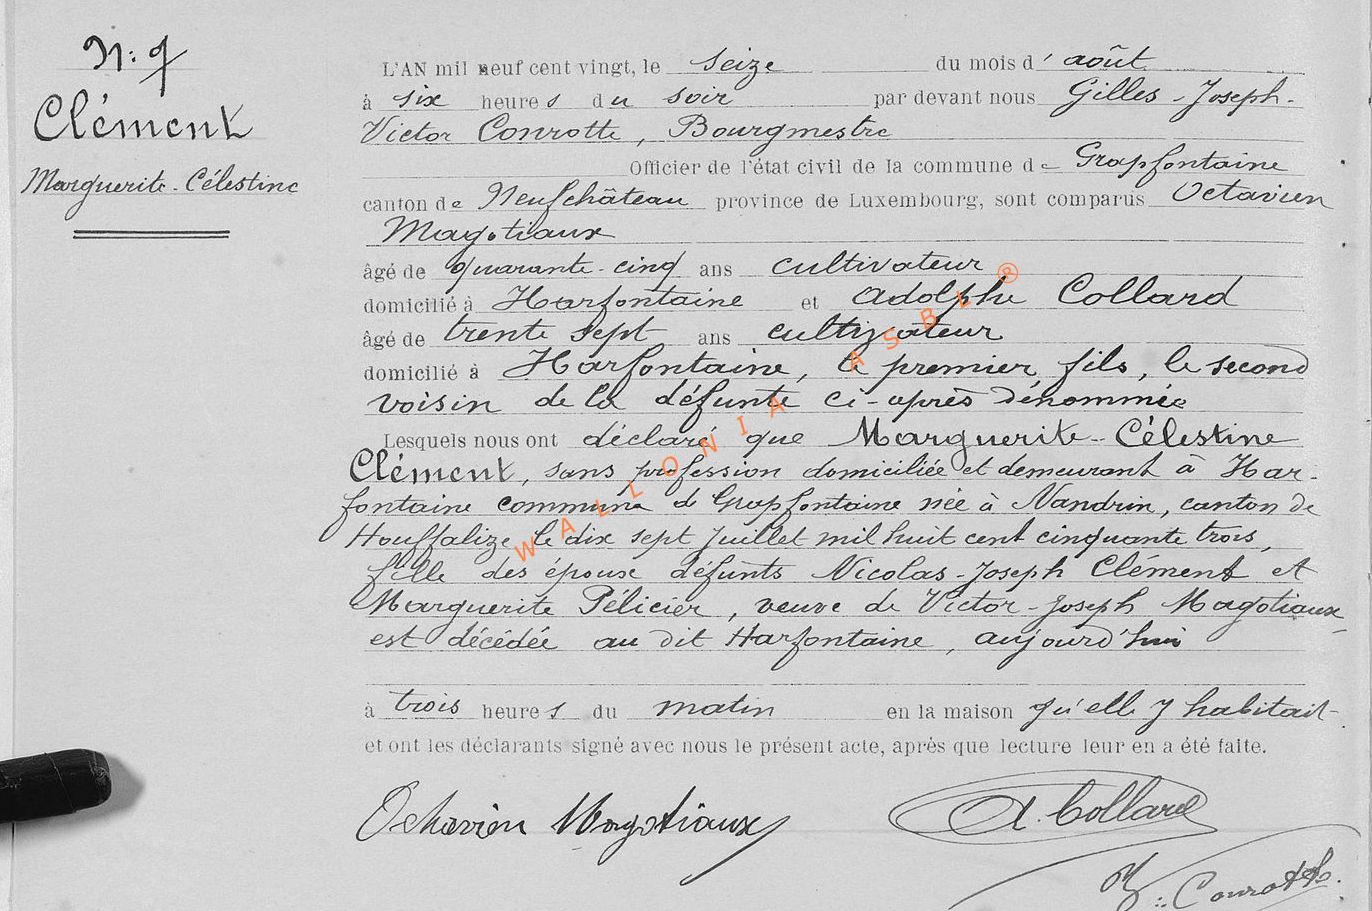 N: 9
Clément
Marguerite-Célestine
L'AN mil neuf cent vingt, le seize du mois d' août
à six heures du soir par devant nous Gilles-Joseph-
Victor Conrotte, Bourgmestre
Officier de l'état civil de la commune de Grapfontaine
canton de Neufchâteau province de Luxembourg, sont comparus Octavien
Magotiaux
âgé de quarante-cinq ans cultivateur
domicilié à Harfontaine et Adolphe Collard
âgé de trente sept ans cultivateur
domicilié à Harfontaine, le premier fils, le second
voisin de la défunte ci-après dénommée
Lesquels nous ont déclaré que Marguerite-Célestine
Clément, sans profession domiciliée et demeurant à Har-
fontaine commune de Grapfontaine née à Nandrin, canton de
Houffalize le dix sept juillet mil huit cent cinquante trois,
fille des époux défunts Nicolas-Joseph Clément et
Marguerite Pélicier, veuve de Victor-Joseph Magotiaux
est décédée au dit Harfontaine, aujourd'hui
à trois heures du matin en la maison qu'elle y habitait
et ont les déclarants signé avec nous le présent acte, après que lecture leur en a été faite.
Octavien Magotiaux
A. Collard
Conrotte
WALLONIA ASBL ®